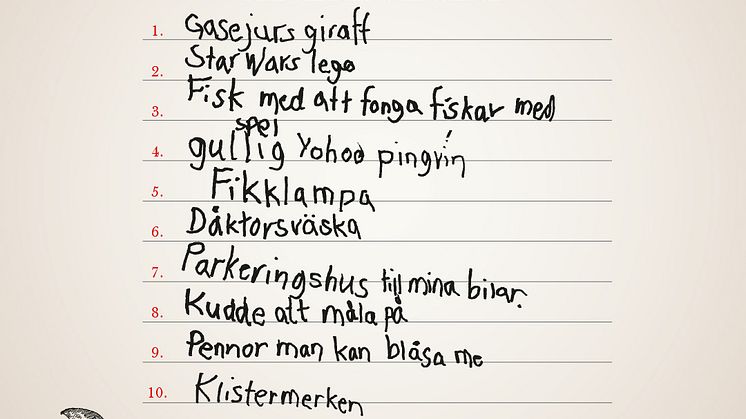 1. Gasejurs giraff
2. Star Wars lego
3. Fisk med att fonga fiskar med
spel
4. gullig Yohoo pingvin
5. Fikklampa
6. Dåktorsväska
7. Parkeringshus till mina bilar.
8. Kudde att måla på
9. Pennor man kan blåsa me
10. Klistermerken